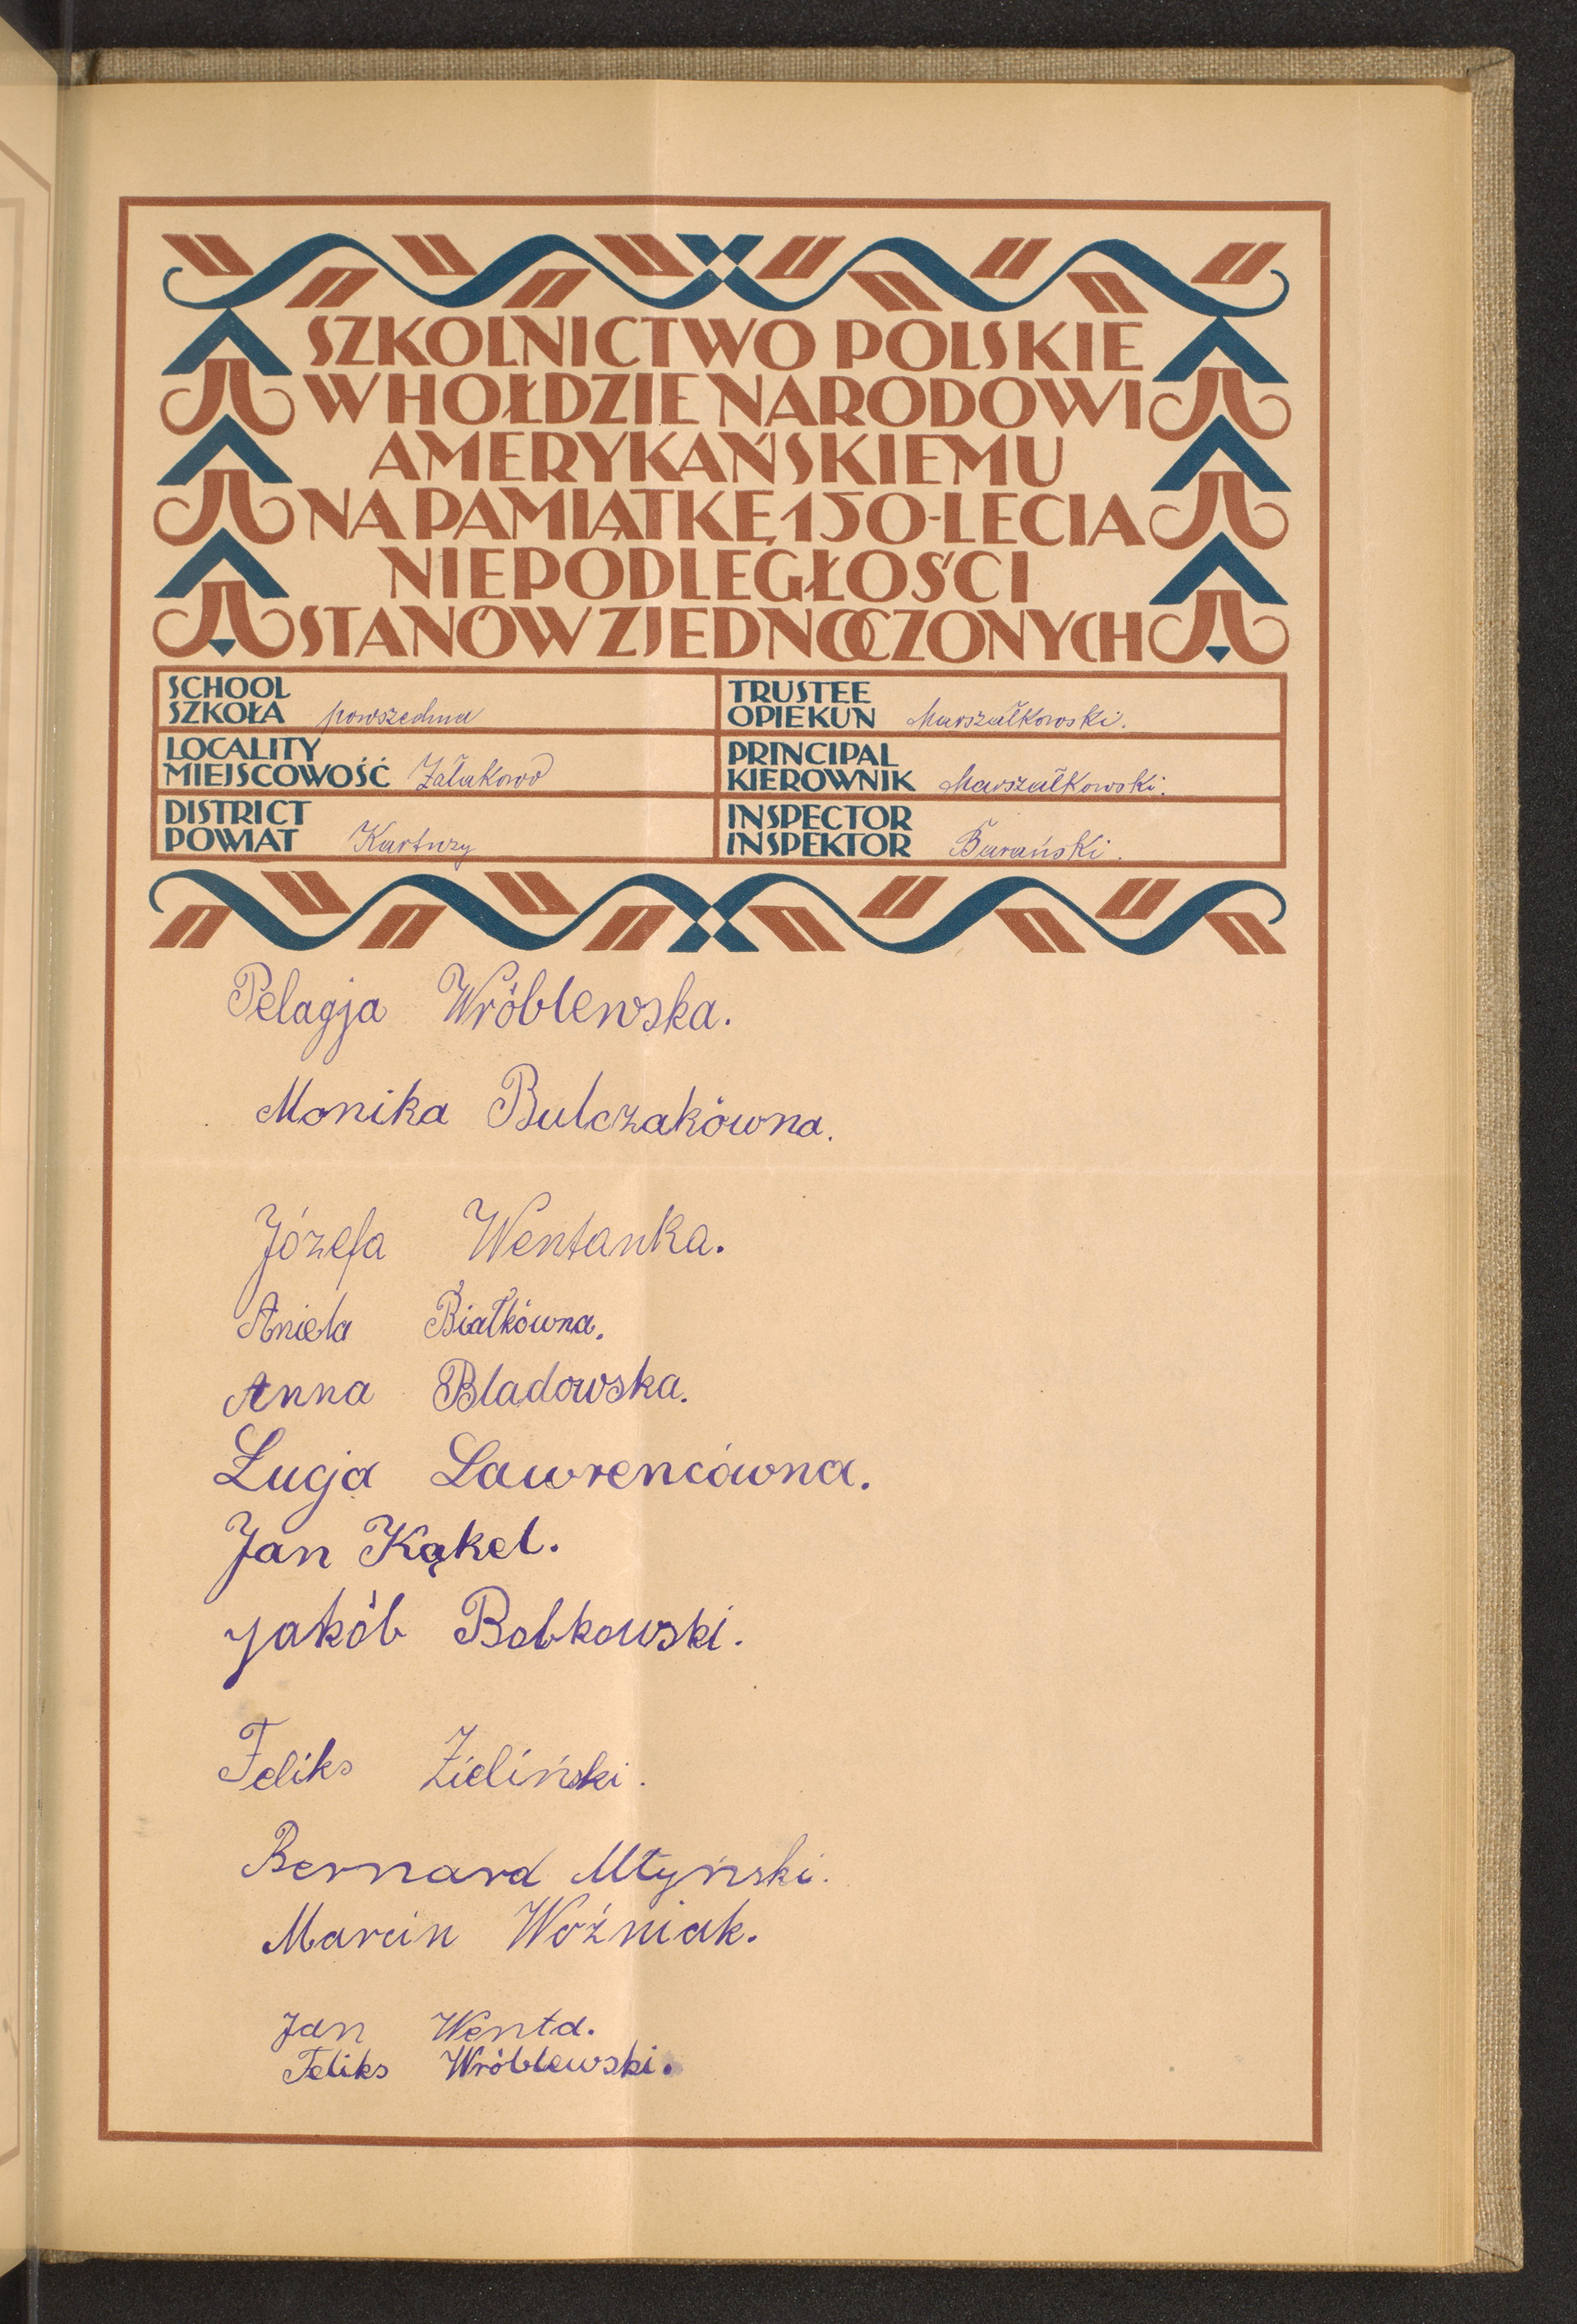 SZKOLNICTWO POLSKIE
W HOŁDZIE NARODOWI
AMERYKAŃSKIEMU
NA PAMIĄTKĘ 150-LECIA
NIEPODLEGŁOŚCI
STANÓW ZJEDNOCZONYCH
SCHOOL
SZKOŁA powszechna
TRUSTEE
OPIEKUN Marszałkowski.
LOCALITY
MIEJSCOWOŚĆ Załakowo
PRINCIPAL
KIEROWNIK Marszałkowski.
DISTRICT
POWIAT Kartuzy
INSPECTOR
INSPEKTOR Barański.
Pelagja Wróblewska.
Monika Bulczakówna.
Józefa Wentanka.
Aniela Białkówna.
Anna Bladowska.
Łucja Lawrencówna.
Jan Kąkel.
Jakób Bobkowski.
Feliks Zieliński.
Bernard Młyński.
Marcin Woźniak.
Jan Wenta.
Feliks Wróblewski.